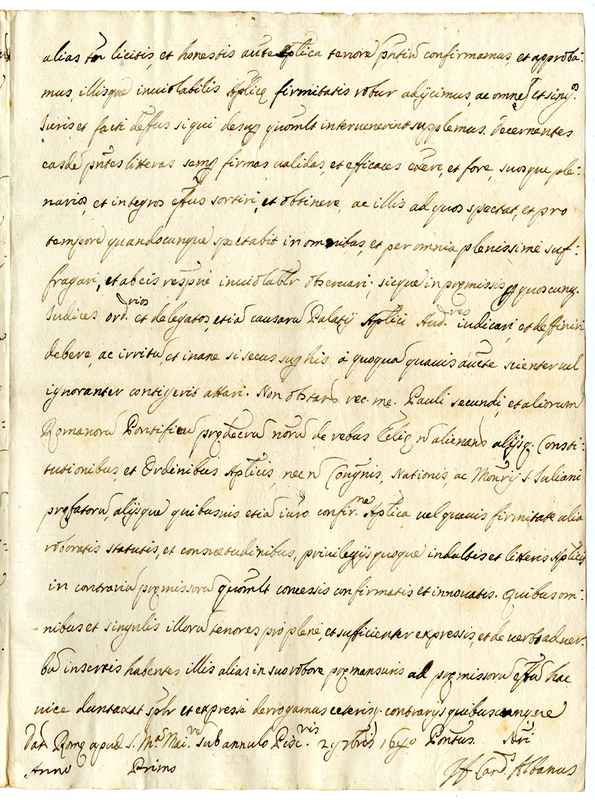 alias tñ licitis, et honestis aucte Aplica tenore pñtiũ confirmamus, et approba-
mus, illisque inviolabilis Aplice firmitatis robur adijcimus, ac omnẽ, et sing.os
Iuris et facti deffus siqui desup quomlt intervenerint supplemus. Decernentes
easdẽ pñtes litteras semp firmas validas, et efficaces existere, et fore, suosque ple-
narios, et integros effus sortiri, et obtinere, ac illis ad quos spectat, et pro
tempore quandocunque spectabit in omnibus, et per omnia plenissime suf-
fragari, et ab eis respve inviolablr observari. sicque in premissis p quoscunq.
Iudices ord.rios et delegatos, etiã causarũ Palatij Aplici Aud.res iudicari, et diffiniri
debere, ac irritũ, et inane si secus sup his à quoquã quavis aucte scienter vel
ignoranter contigerit attari. Non obstan rec. me. Pauli secundi, et aliorum
Romanorũ Pontificũ predecrũ nrorũ de rebus Ecclie ñ alienañ alijsq. Consti-
tutionibus, et Ordinibus Aplicis nec ñ Congnis, Nationis ac Monrij S. Iuliani
prefatorũ, alijsque quibusvis etiã iurto confir.ne Aplica vel quavis firmitate alia
roboratis statutis, et consuetudinibus, privilegijs quoque indultis et litteris Aplicis
in contraria premissorũ quomlt concessis confirmatis et innovatis. Quibus om-
nibus et singulis illorũ tenores pro plene et sufficienter expressis, et de verbo ad ver-
bũ insertis habentes illis alias in suo robore permansuris ad premissorũ effũ hac
vice dumtaxat splr et expresse derogamus ceterisq. contrarijs quibuscunque
Dat Rome apud S. M.a Mai.re sub annulo Pisc.ris 29 7bris 1690 Pontus. Nri
Anno Primo
JF Card.s Albanus